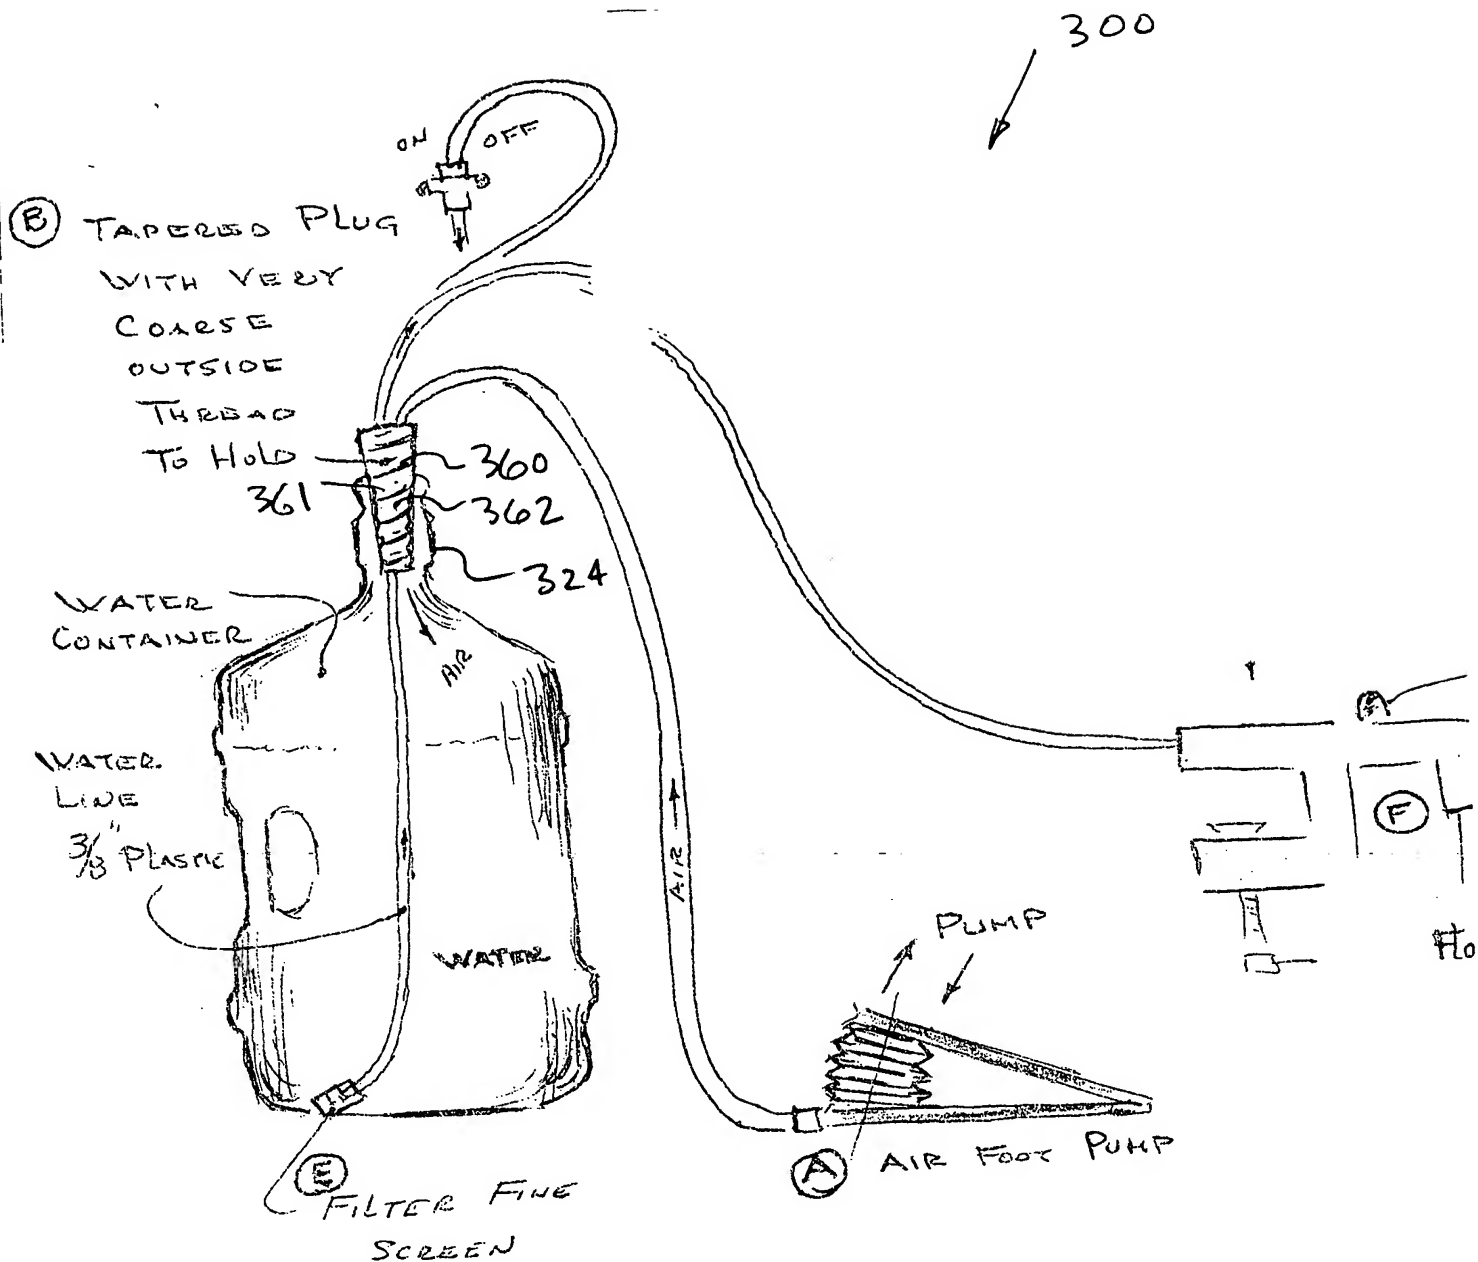 300
ON OFF
B TAPERED PLUG
WITH VERY
COARSE
OUTSIDE
THREAD
TO HOLD
360
361
362
324
WATER
CONTAINER
AIR
WATER
LINE
3/8" PLASTIC
WATER
AIR
F
PUMP
A AIR FOOT PUMP
E
FILTER FINE
SCREEN